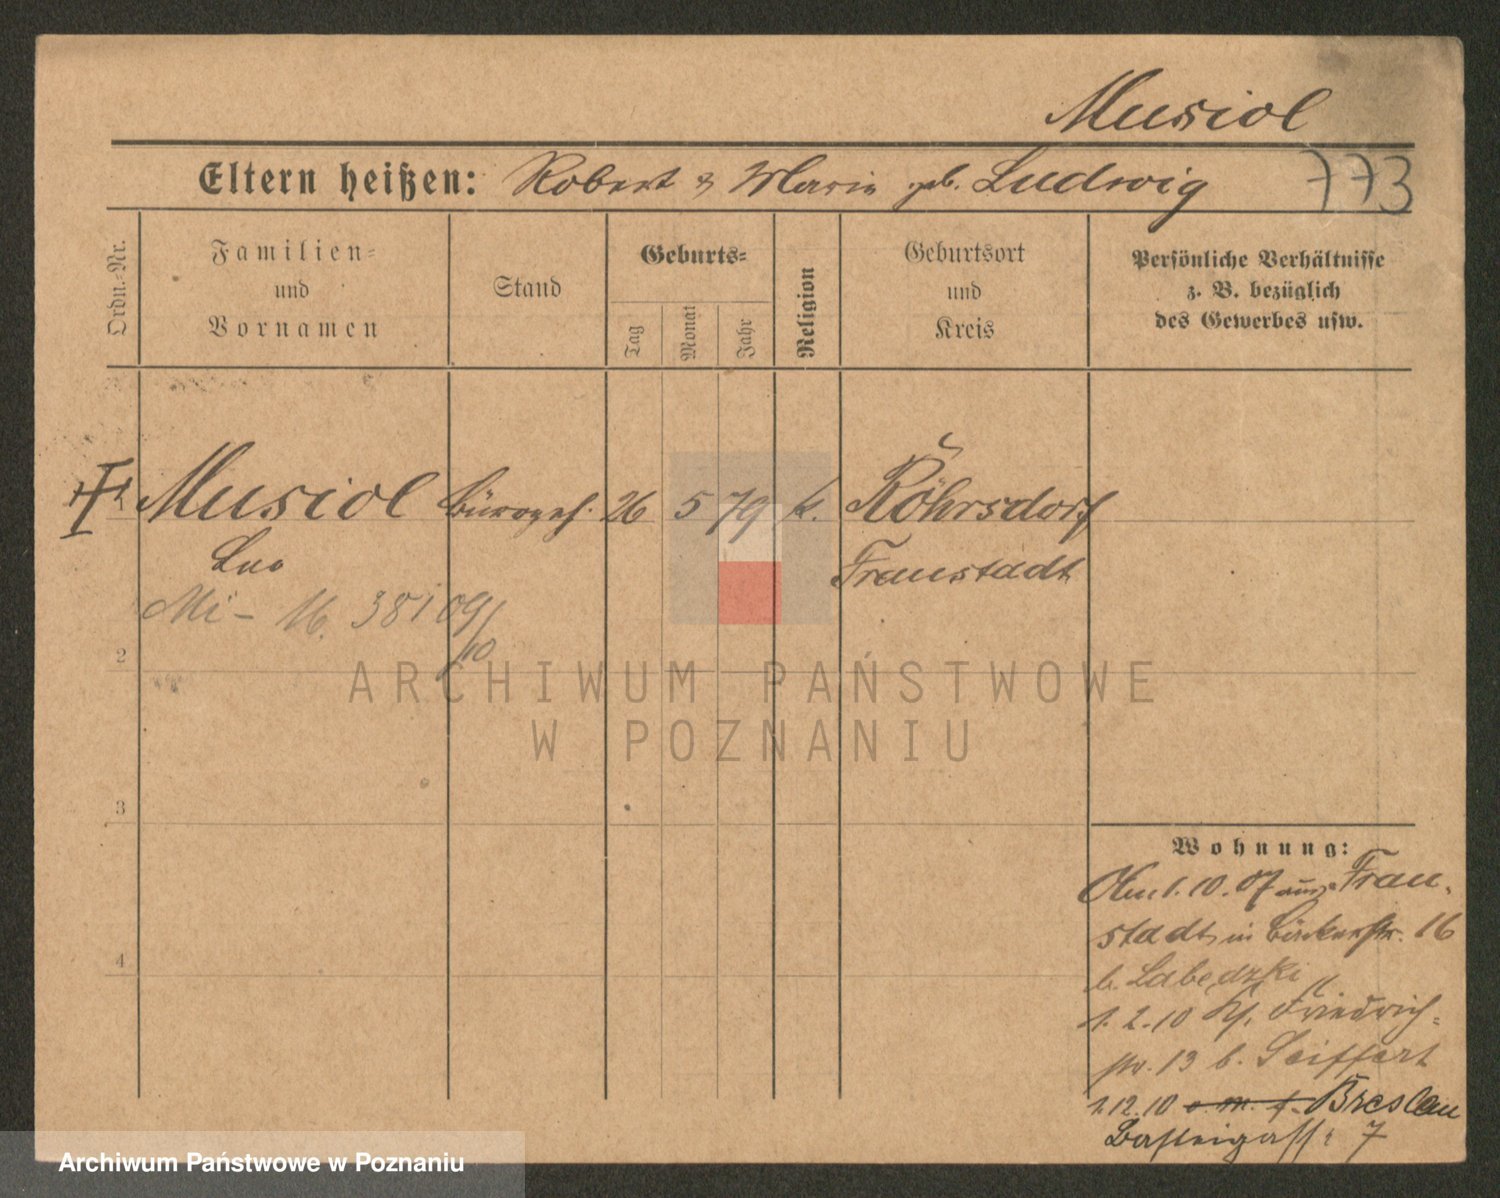 Musiol
Eltern heißen: Robert & Marie geb. Ludwig 773
Ordn.-Nr.
Familien-
und
Vornamen
Stand
Geburts-
Tag
Monat
Jahr
Religion
Geburtsort
und
Kreis
Persönliche Verhältnisse
z. B. bezüglich
des Gewerbes usw.
1 Musiol Bürogeh. 26 5 79 k. Röhrsdorf
Leo Fraustadt
Mi- 16. 381 09/10
2
3
4
Wohnung:
1.10.07 aus Frau-
stadt in Bäckerstr. 16
b. Labedzki
1.2.10 Friedrich-
str. 13 b. Seiffert
1.12.10 Breslau
Basteigasse 7
ARCHIWUM PAŃSTWOWE
W POZNANIU
Archiwum Państwowe w Poznaniu